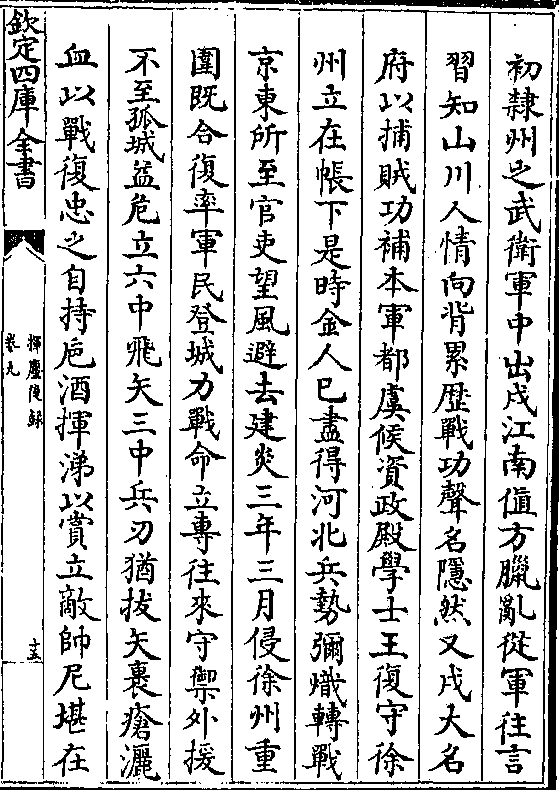 初隸州之武衛軍中出戍江南值方臘亂從軍往言
習知山川人情向背累歴戰功聲名隱然又戍大名
府以捕賊功補本軍都虞候資政殿學士王復守徐
州立在帳下是時金人已盡得河北兵勢彌熾轉戰
京東所至官吏望風避去建炎三年三月侵徐州重
圍既合復率軍民登城力戰命立專往來守禦外援
不至孤城益危立六中飛矢三中兵刃猶拔矢裹瘡灑
血以戰復忠之自持巵酒揮涕以賞立敵帥尼堪在
欽定四庫全書
揮麈後錄
卷九
十五